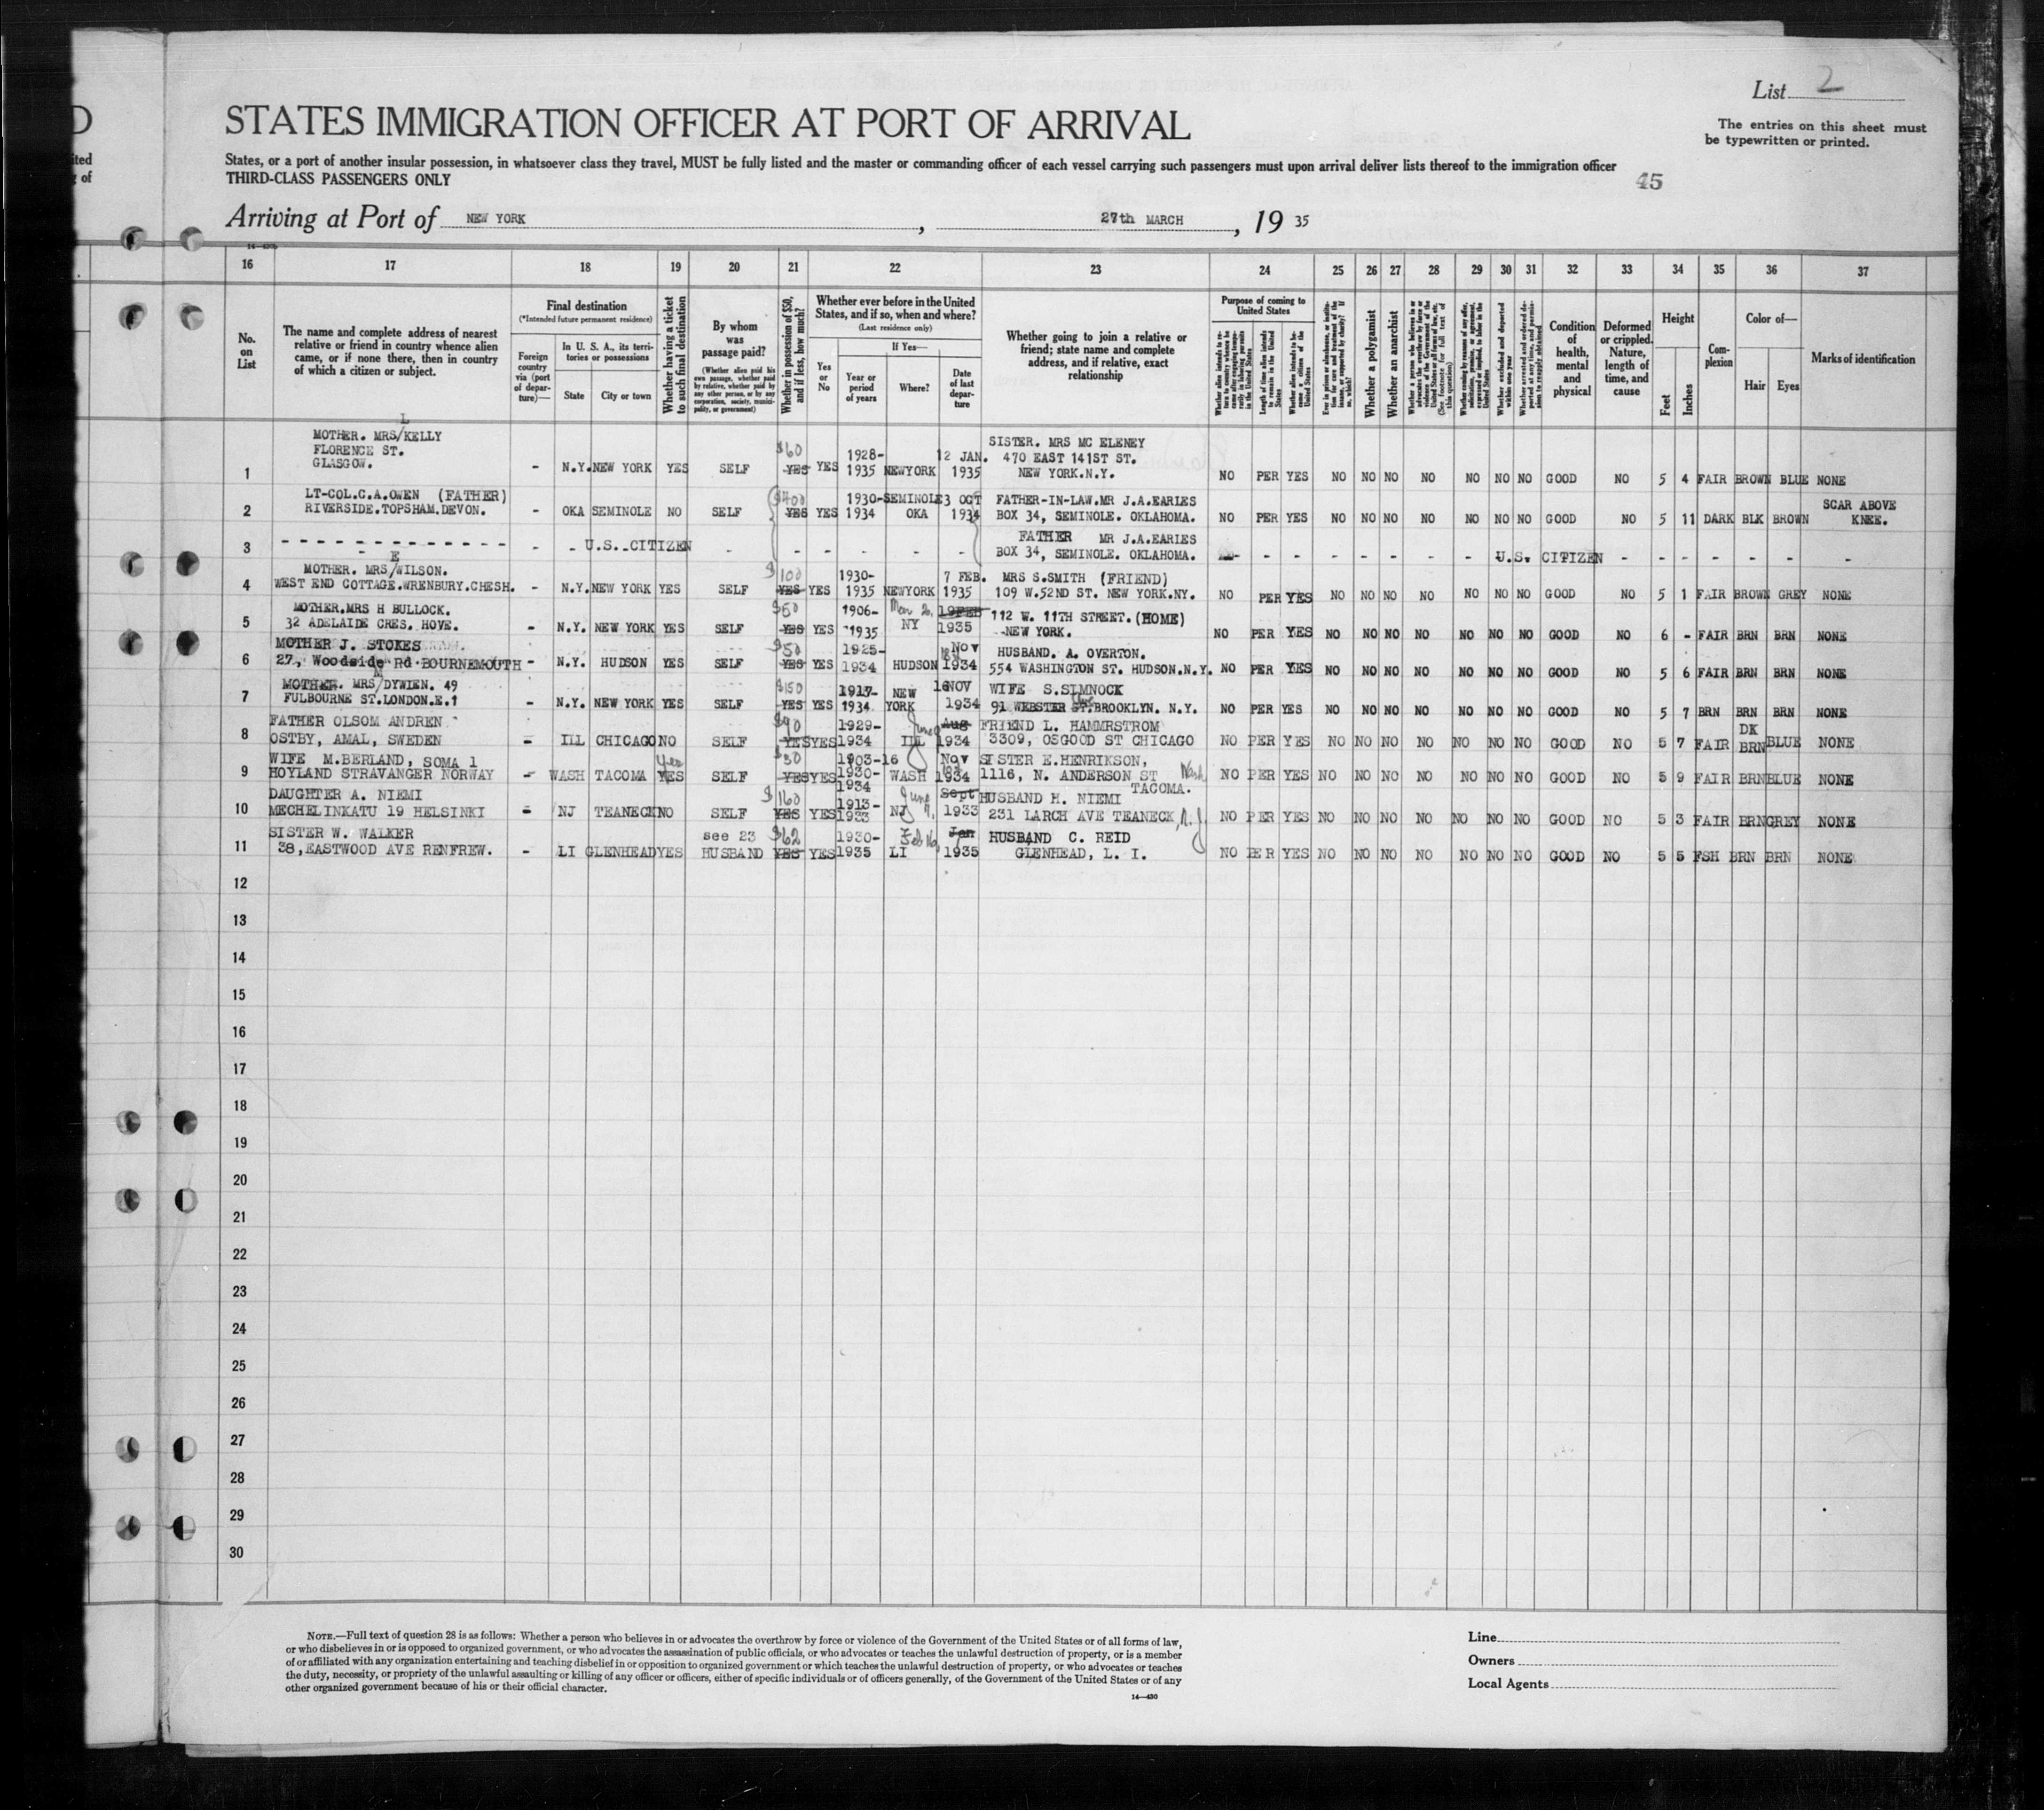 List 2
STATES IMMIGRATION OFFICER AT PORT OF ARRIVAL
The entries on this sheet must
be typewritten or printed.
States, or a port of another insular possession, in whatsoever class they travel, MUST be fully listed and the master or commanding officer of each vessel carrying such passengers must upon arrival deliver lists thereof to the immigration officer
THIRD-CLASS PASSENGERS ONLY
45
Arriving at Port of NEW YORK, 27th MARCH, 19 35
16 17 18 19 20 21 22 23 24 25 26 27 28 29 30 31 32 33 34 35 36 37
No. on List
The name and complete address of nearest relative or friend in country whence alien came, or if none there, then in country of which a citizen or subject.
Final destination
(*Intended future permanent residence)
Foreign country via (port of departure)—
In U. S. A., its territories or possessions
State
City or town
Whether having a ticket to such final destination
By whom was passage paid?
(Whether alien paid his own passage, whether paid by relative, whether paid by any other person, or by any corporation, society, municipality, or government)
Whether in possession of $50, and if less, how much?
Whether ever before in the United States, and if so, when and where?
(Last residence only)
Yes or No
If Yes—
Year or period of years
Where?
Date of last departure
Whether going to join a relative or friend; state name and complete address, and if relative, exact relationship
Purpose of coming to United States
Whether a polygamist
Whether an anarchist
Condition of health, mental and physical
Deformed or crippled. Nature, length of time, and cause
Height
Feet
Inches
Complexion
Color of—
Hair
Eyes
Marks of identification
L
MOTHER. MRS/KELLY $60 1928- 12 JAN. SISTER. MRS MC ELENEY
FLORENCE ST. 470 EAST 141ST ST.
1 GLASGOW. - N.Y. NEW YORK YES SELF YES YES 1935 NEWYORK 1935 NEW YORK.N.Y. NO PER YES NO NO NO NO NO NO NO GOOD NO 5 4 FAIR BROWN BLUE NONE
LT-COL.C.A.OWEN (FATHER) $400 1930- SEMINOLE 3 OCT FATHER-IN-LAW.MR J.A.EARLES SCAR ABOVE
2 RIVERSIDE.TOPSHAM.DEVON. - OKA SEMINOLE NO SELF YES YES 1934 OKA 1934 BOX 34, SEMINOLE. OKLAHOMA. NO PER YES NO NO NO NO NO NO NO GOOD NO 5 11 DARK BLK BROWN KNEE.
FATHER MR J.A.EARLES
3 - - - - - - - - - - - - - - - U.S. CITIZEN - - - - - BOX 34, SEMINOLE. OKLAHOMA. - - - - - - - U.S. CITIZEN - - - - - -
E
MOTHER. MRS/WILSON. $100 1930- 7 FEB. MRS S.SMITH (FRIEND)
4 WEST END COTTAGE.WRENBURY.CHESH. - N.Y. NEW YORK YES SELF YES YES 1935 NEWYORK 1935 109 W.52ND ST. NEW YORK.NY. NO PER YES NO NO NO NO NO NO NO GOOD NO 5 1 FAIR BROWN GREY NONE
MOTHER.MRS H BULLOCK. $50 1906- 19FEB 112 W. 11TH STREET.(HOME)
5 32 ADELAIDE CRES. HOVE. - N.Y. NEW YORK YES SELF YES YES 1935 NY 1935 NEW YORK. NO PER YES NO NO NO NO NO NO NO GOOD NO 6 - FAIR BRN BRN NONE
MOTHER J. STOKES $50 1925- Nov HUSBAND. A. OVERTON.
6 27, Woodside Rd BOURNEMOUTH - N.Y. HUDSON YES SELF YES YES 1934 HUDSON 1934 554 WASHINGTON ST. HUDSON.N.Y. NO PER YES NO NO NO NO NO NO NO GOOD NO 5 6 FAIR BRN BRN NONE
MOTHER. MRS/DYWIEN. 49 $150 1917- NEW 16NOV WIFE S.SIMNOCK
7 FULBOURNE ST.LONDON.E.1 - N.Y. NEW YORK YES SELF YES YES 1934 YORK 1934 91 WEBSTER ST.BROOKLYN. N.Y. NO PER YES NO NO NO NO NO NO NO GOOD NO 5 7 BRN BRN BRN NONE
FATHER OLSOM ANDREN $90 1929- June Aug FRIEND L. HAMMRSTROM DK
8 OSTBY, AMAL, SWEDEN - ILL CHICAGO NO SELF YES YES 1934 ILL 1934 3309, OSGOOD ST CHICAGO NO PER YES NO NO NO NO NO NO NO GOOD NO 5 7 FAIR BRN BLUE NONE
WIFE M.BERLAND, SOMA 1 Yes $30 1903-16 Nov SISTER E.HENRIKSON,
9 HOYLAND STRAVANGER NORWAY - WASH TACOMA YES SELF YES YES 1930- WASH 1934 1116, N. ANDERSON ST Wash NO PER YES NO NO NO NO NO NO NO GOOD NO 5 9 FAIR BRN BLUE NONE
1934 TACOMA.
DAUGHTER A. NIEMI $160 1913- June Sept HUSBAND H. NIEMI
10 MECHELINKATU 19 HELSINKI - NJ TEANECK NO SELF YES YES 1933 NJ 7, 1933 231 LARCH AVE TEANECK, N.J. NO PER YES NO NO NO NO NO NO NO GOOD NO 5 3 FAIR BRN GREY NONE
SISTER W. WALKER see 23 $62 1930- Feb 16 Jan HUSBAND C. REID
11 38,EASTWOOD AVE RENFREW. - LI GLENHEAD YES HUSBAND YES YES 1935 LI 1935 GLENHEAD, L. I. NO PER YES NO NO NO NO NO NO NO GOOD NO 5 5 FSH BRN BRN NONE
12
13
14
15
16
17
18
19
20
21
22
23
24
25
26
27
28
29
30
NOTE.—Full text of question 28 is as follows: Whether a person who believes in or advocates the overthrow by force or violence of the Government of the United States or of all forms of law,
or who disbelieves in or is opposed to organized government, or who advocates the assassination of public officials, or who advocates or teaches the unlawful destruction of property, or is a member
of or affiliated with any organization entertaining and teaching disbelief in or opposition to organized government or which teaches the unlawful destruction of property, or who advocates or teaches
the duty, necessity, or propriety of the unlawful assaulting or killing of any officer or officers, either of specific individuals or of officers generally, of the Government of the United States or of any
other organized government because of his or their official character.
14—430
Line
Owners
Local Agents